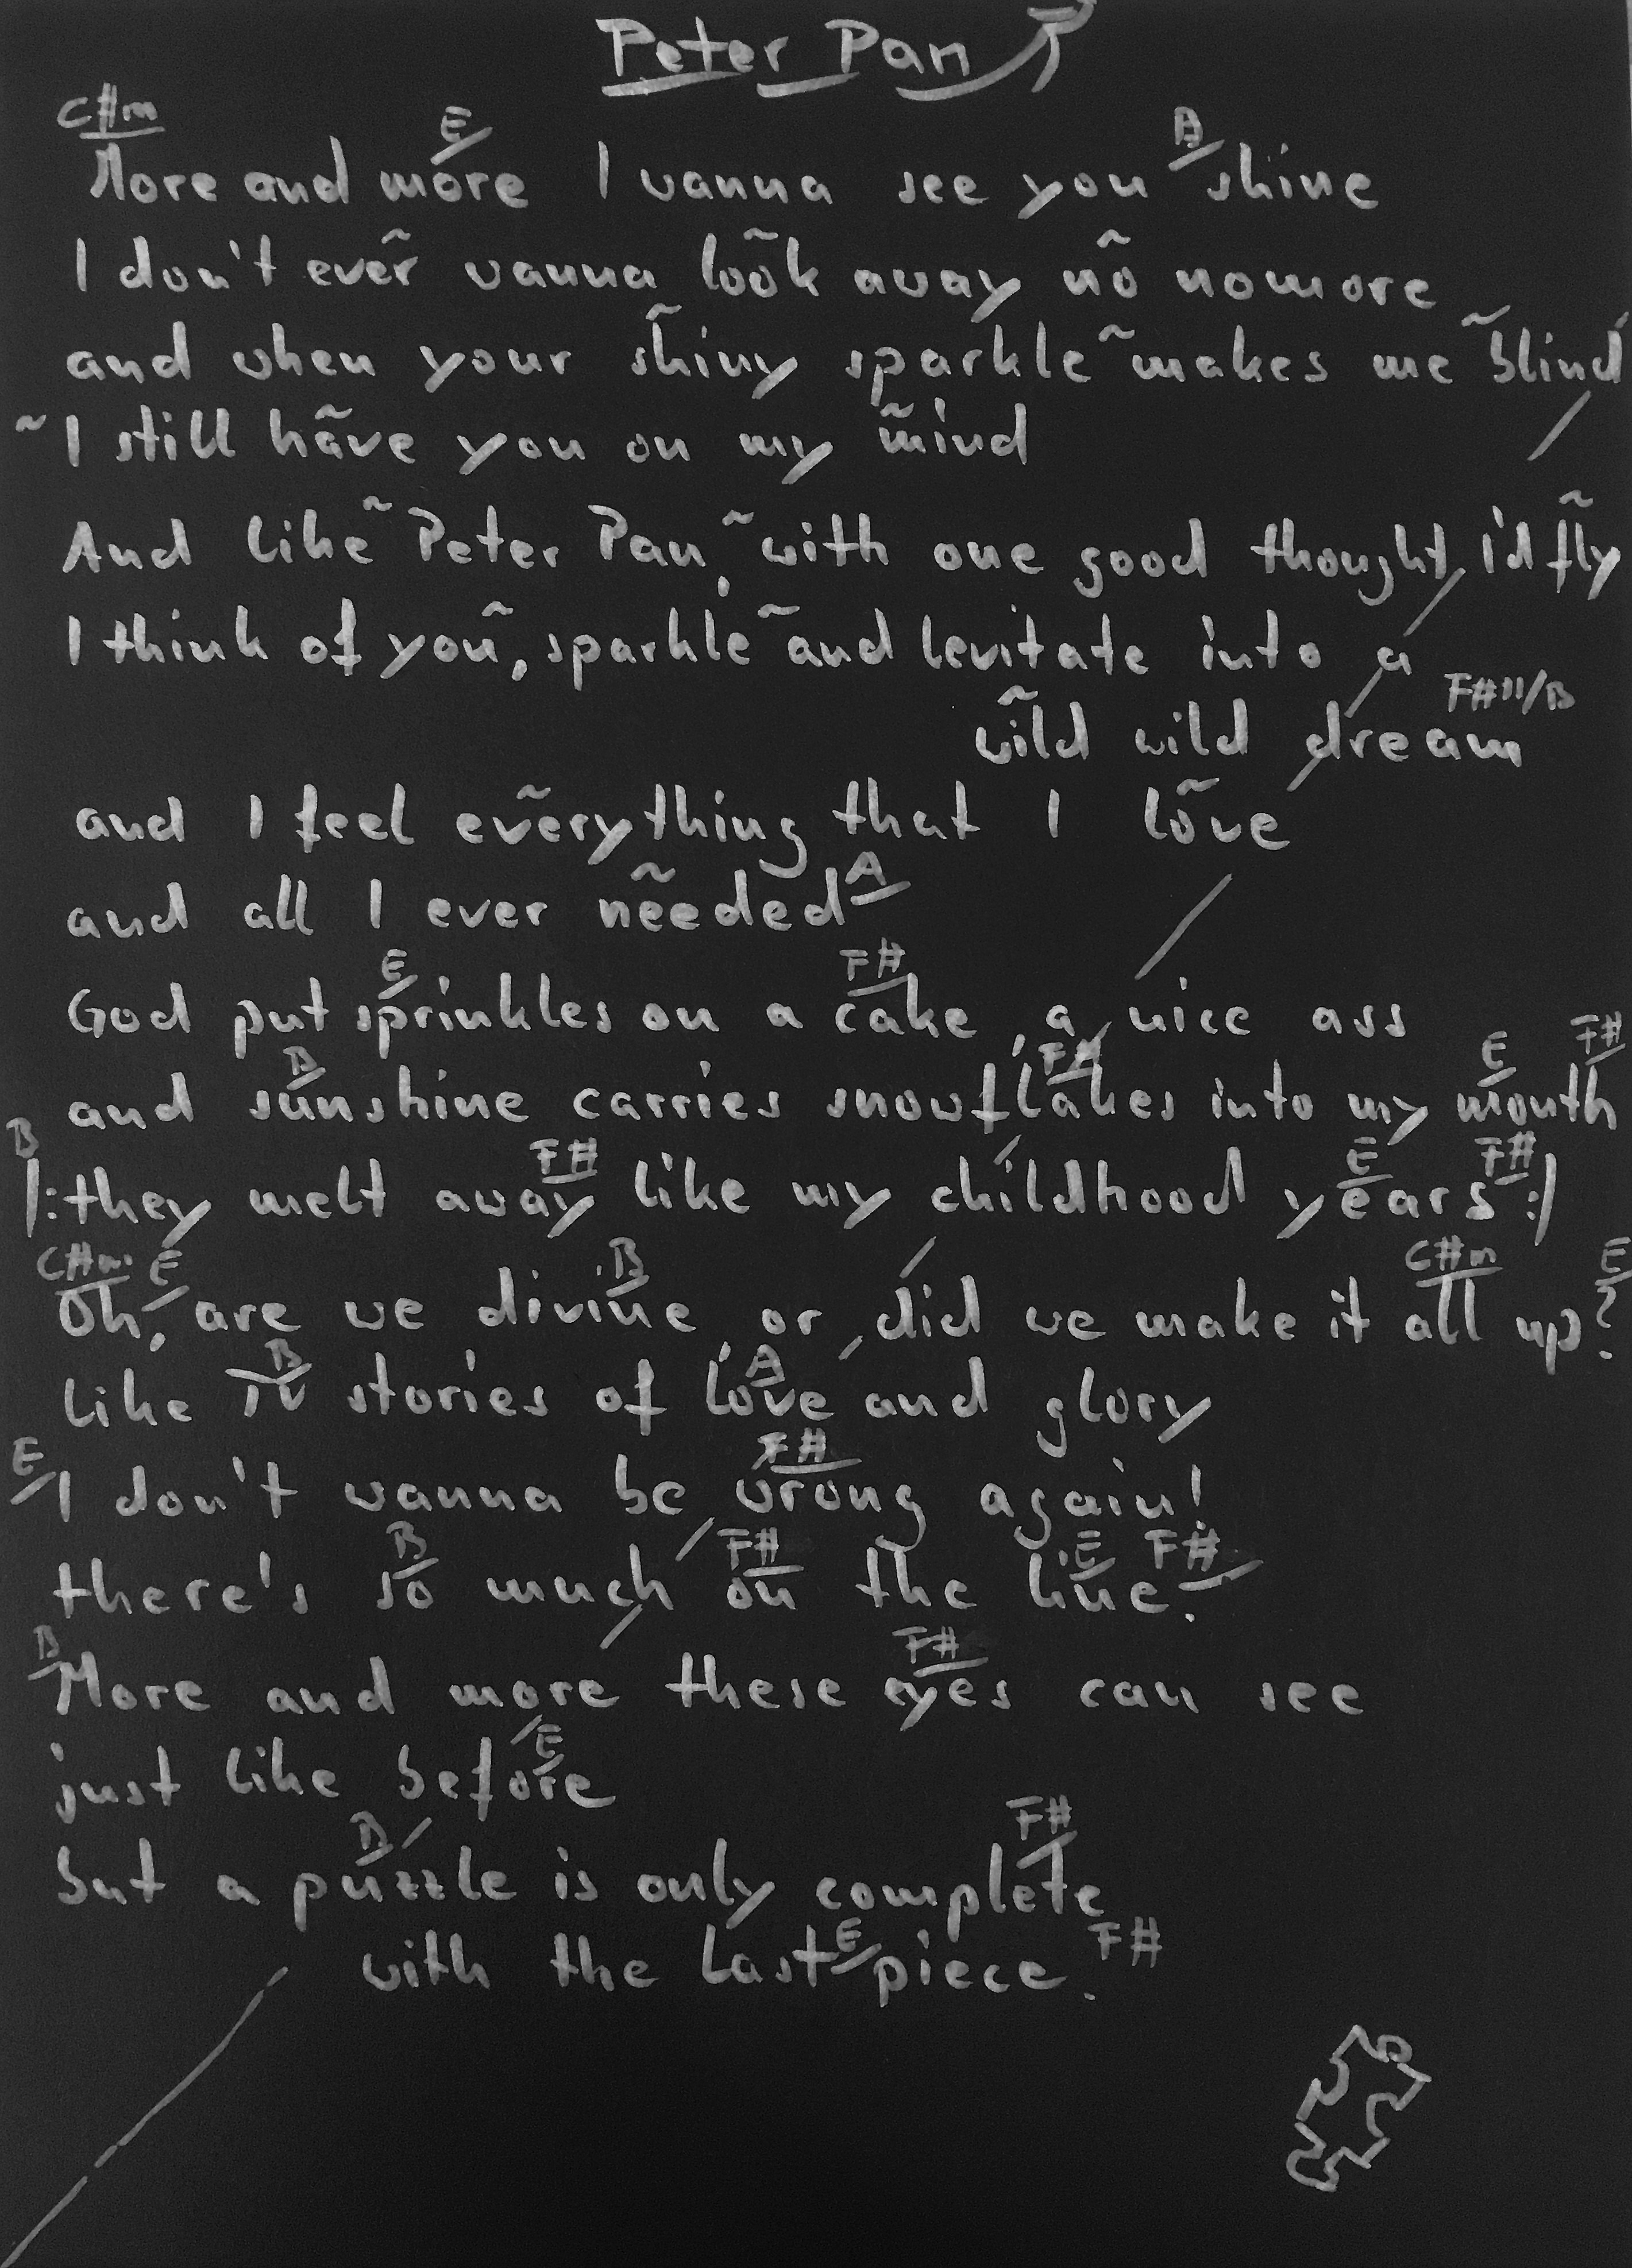 Peter Pan
C#m E A
More and more I wanna see you shine
~ ~ ~
I don't ever wanna look away no nomore
~ ~ ~
and when your shiny sparkle makes me blind
~ ~ ~
I still have you on my mind
~ ~ ~
And like Peter Pan, with one good thought, i'd fly
~ ~
I think of you, sparkle and levitate into a
~ F#11/B
wild wild dream
~ ~
and I feel everything that I love
~ A
and all I ever needed
E F#
God put sprinkles on a cake, a nice ass
B F# E F#
and sunshine carries snowflakes into my mouth
B F# E F#
|: they melt away like my childhood years :|
C#m E B C#m E
Oh, are we divine, or did we make it all up?
B A
like TV stories of love and glory
E F#
I don't wanna be wrong again!
B F# E F#
there's so much on the line.
B F#
More and more these eyes can see
E
just like before
B F#
but a puzzle is only complete
E F#
with the last piece.